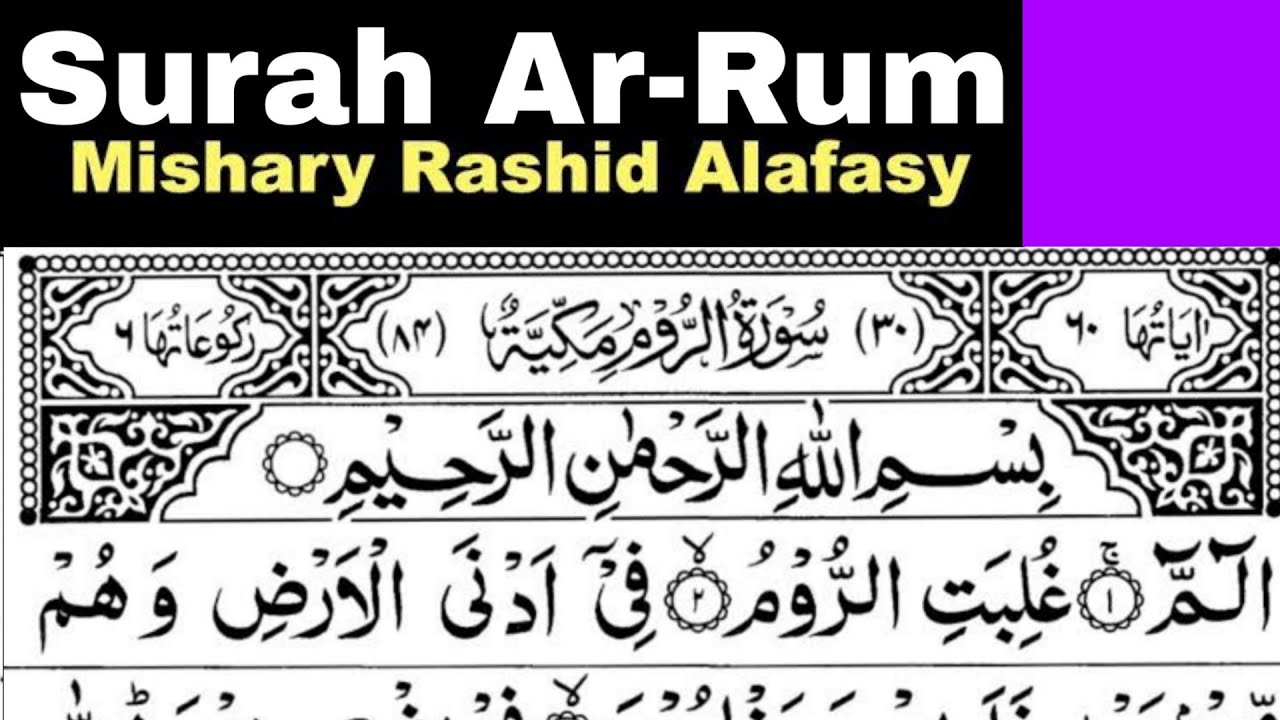 Surah Ar-Rum
Mishary Rashid Alafasy
اٰيَاتُهَا ٦٠ (٣٠) سُوْرَةُ الرُّوْمِ مَكِّيَّةٌ (٨٤) رُكُوْعَاتُهَا ٦
بِسْمِ اللّٰهِ الرَّحْمٰنِ الرَّحِيْمِ
الٓمّٓ ۚ ١ غُلِبَتِ الرُّوْمُ ۙ ٢ فِيْٓ اَدْنَى الْاَرْضِ وَهُمْ